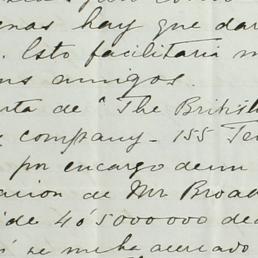 enas hay que dar
. Esto facilitaria m
amigos.
rta de "The British
company - 155 Te
por encargo de un
ación de Mr Broad
ide 4 ó 5000000 de
se me ha acercado